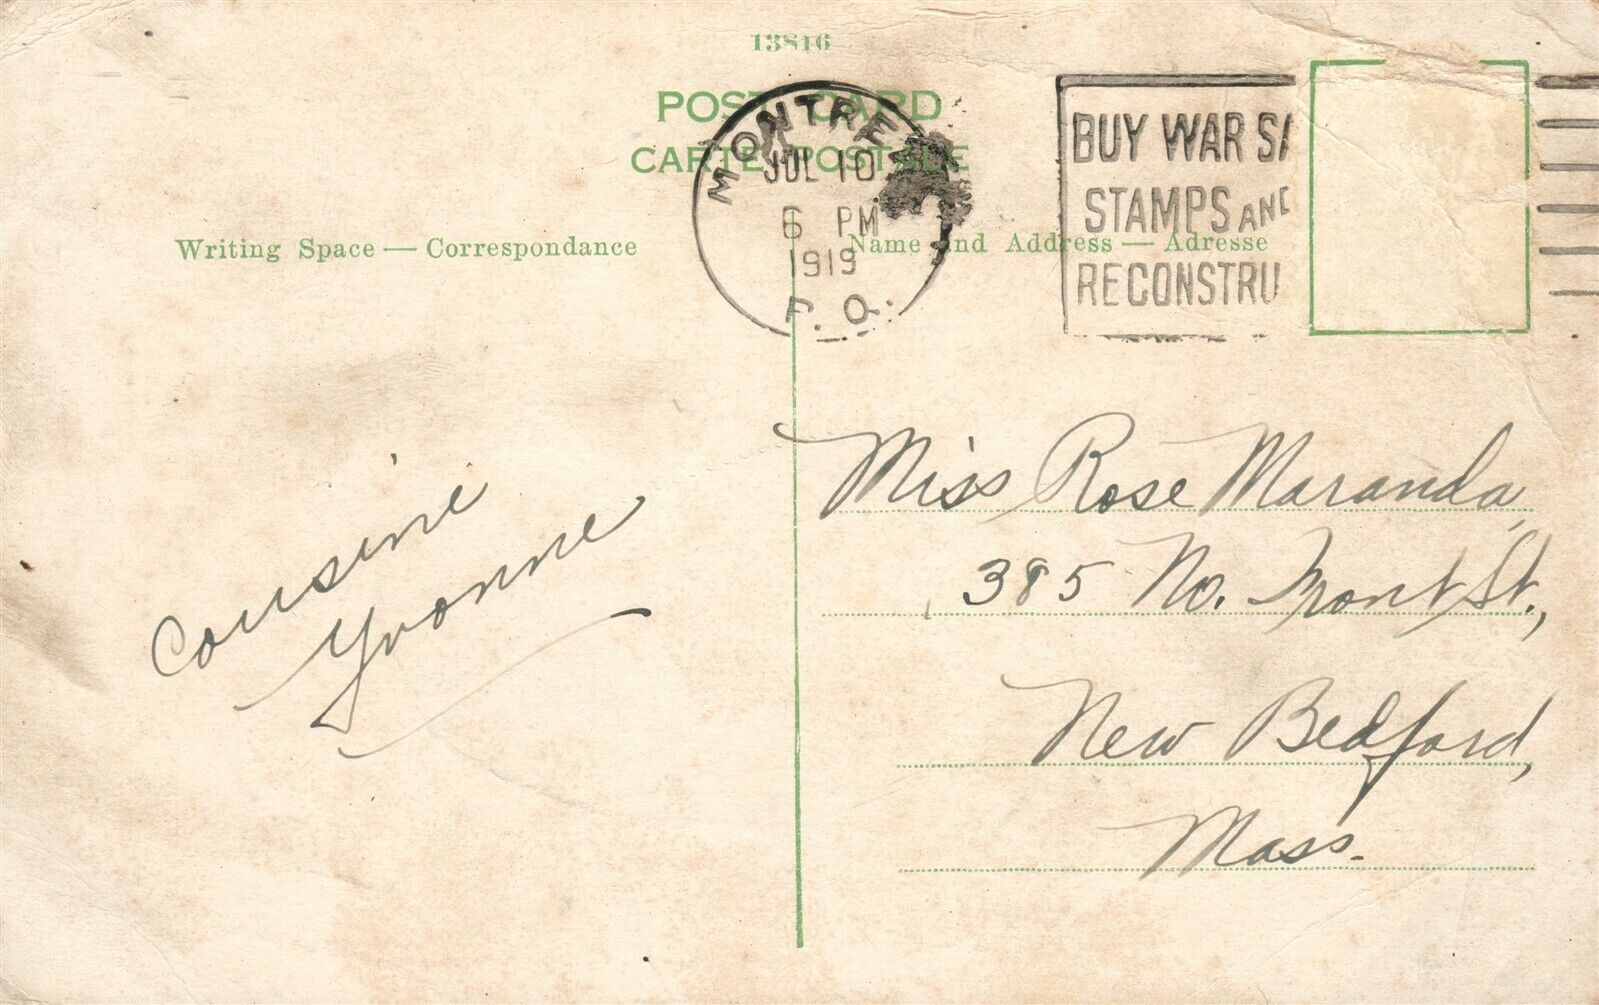 13816
POST CARD
CARTE POSTALE
MONTREAL
JUL 10
6 PM
1919
P.Q.
BUY WAR SA
STAMPS AND
RECONSTRU
Writing Space — Correspondance
Name and Address — Adresse
Cousine
Yvonne
Miss Rose Maranda,
385 No. Front St.,
New Bedford,
Mass.